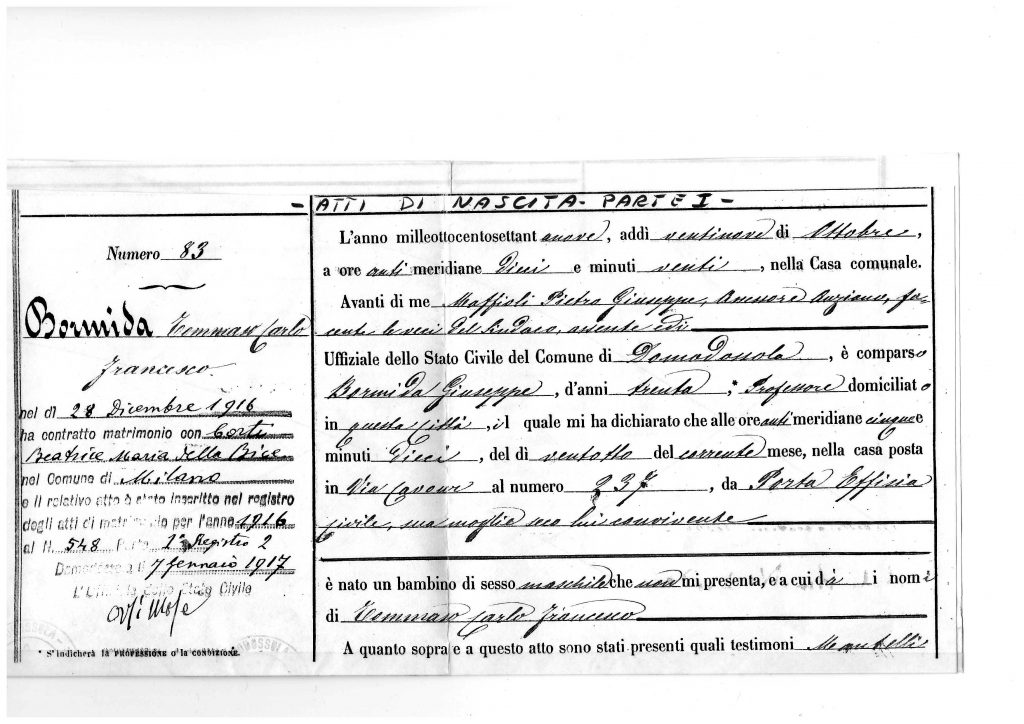 - ATTI DI NASCITA - PARTE I -
Numero 83
Bormida Tommaso Carlo
Francesco.
nel dì 28 Dicembre 1916
ha contratto matrimonio con Corti
Beatrice Maria della Bice
nel Comune di Milano
e il relativo atto è stato inscritto nel registro
degli atti di matrimonio per l'anno 1916
al N. 548 Parte 1ª Registro 2
Domodossola lì 7 Gennaio 1917
L'Ufficiale dello Stato Civile
* S'indicherà la PROFESSIONE o la CONDIZIONE.
L'anno milleottocentosettantanove, addì ventinove di Ottobre,
a ore antimeridiane dieci e minuti venti, nella Casa comunale.
Avanti di me Maffioli Pietro Giuseppe, Assessore Anziano, fa-
cente le veci del Sindaco, assente edi
Uffiziale dello Stato Civile del Comune di Domodossola, è comparso
Bormida Giuseppe, d'anni trenta, * Professore domiciliato
in questa Città, il quale mi ha dichiarato che alle ore antimeridiane cinque e
minuti dieci, del dì ventotto del corrente mese, nella casa posta
in Via Cavour al numero 237, da Porta Effisia
civile, sua moglie seco lui convivente
è nato un bambino di sesso maschile che non mi presenta, e a cui dà i nomi
di Tommaso Carlo Francesco
A quanto sopra e a questo atto sono stati presenti quali testimoni Mantelli